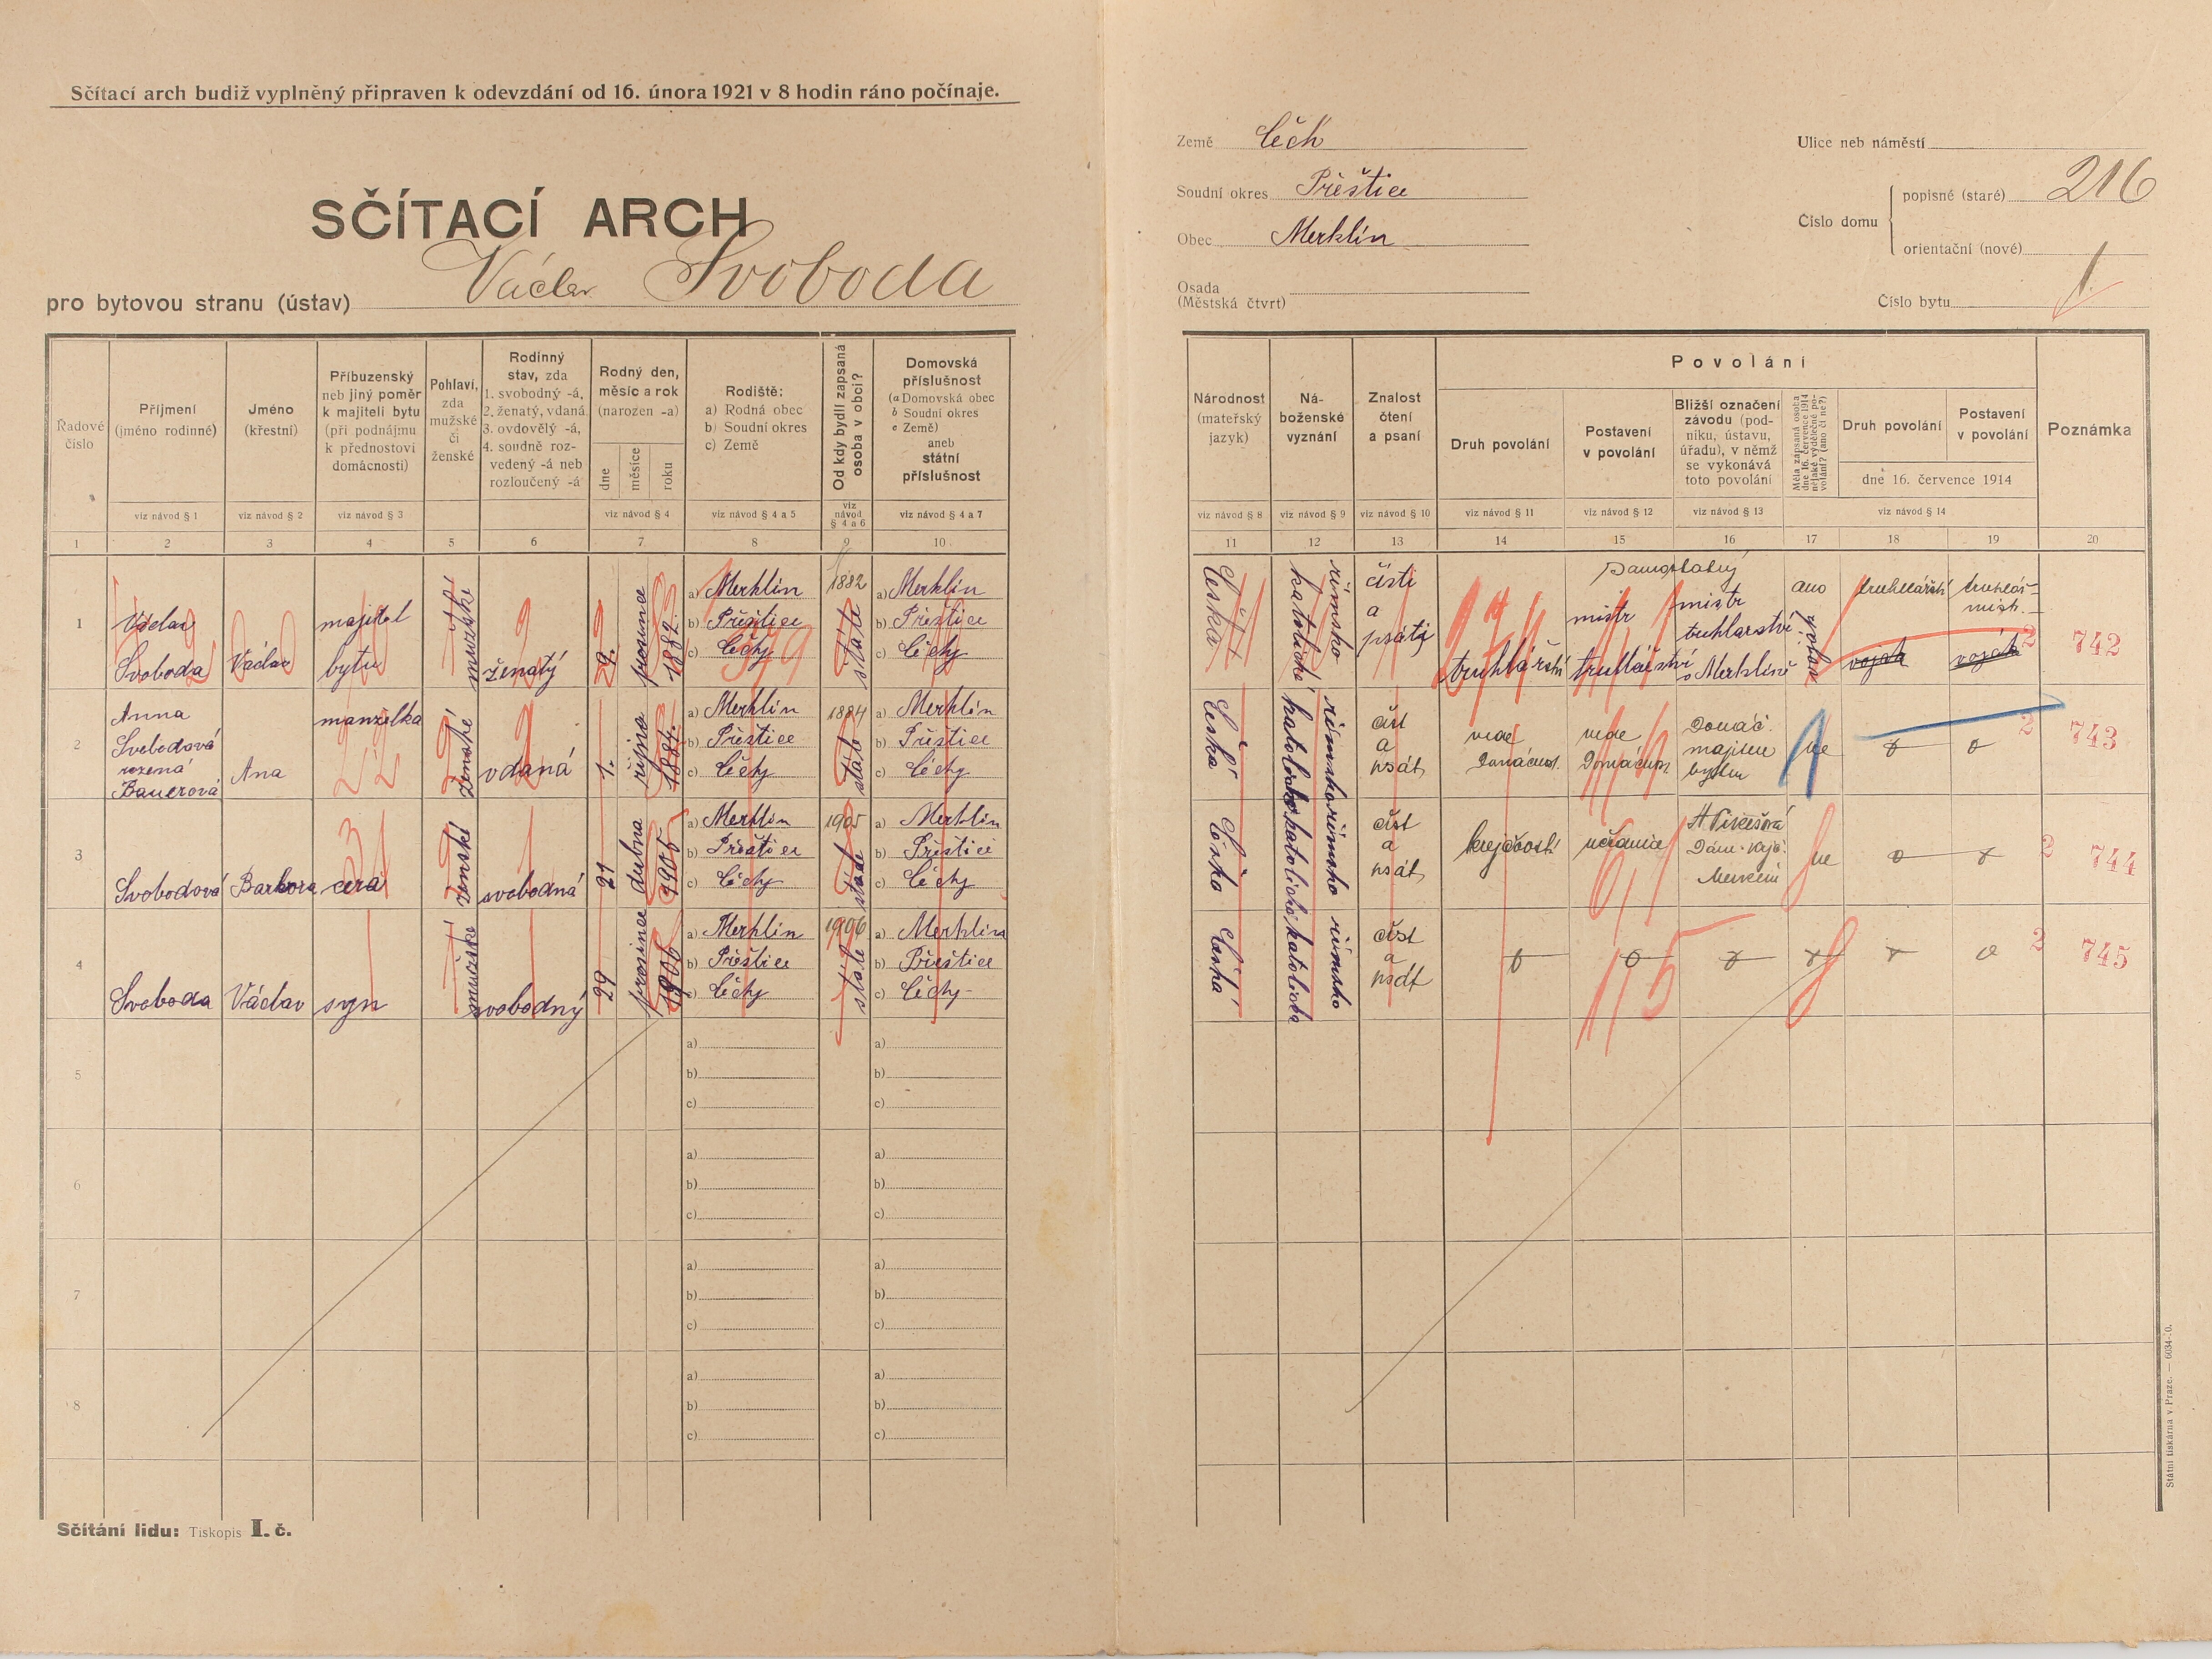 Sčítací arch budiž vyplněný připraven k odevzdání od 16. února 1921 v 8 hodin ráno počínaje.
SČÍTACÍ ARCH
pro bytovou stranu (ústav) Václav Svoboda
Země Čech
Soudní okres Přeštice
Obec Merklín
Osada
(Městská čtvrt)
Ulice neb náměstí
Číslo domu
popisné (staré) 216
orientační (nové)
Číslo bytu 1.
Řadové
číslo
Příjmení
(jméno rodinné)
Jméno
(křestní)
Příbuzenský
neb jiný poměr
k majiteli bytu
(při podnájmu
k přednostovi
domácnosti)
Pohlaví,
zda
mužské
či
ženské
Rodinný
stav, zda
1. svobodný -á,
2. ženatý, vdaná
3. ovdovělý -á,
4. soudně roz-
vedený -á neb
rozloučený -á
Rodný den,
měsíc a rok
(narozen -a)
dne
měsíce
roku
Rodiště:
a) Rodná obec
b) Soudní okres
c) Země
Od kdy bydlí zapsaná
osoba v obci?
Domovská
příslušnost
(a Domovská obec
b Soudní okres
c Země)
aneb
státní
příslušnost
viz návod § 1
viz návod § 2
viz návod § 3
viz návod § 4
viz návod § 4 a 5
viz
návod
§ 4 a 6
viz návod § 4 a 7
1 2 3 4 5 6 7 8 9 10
Národnost
(mateřský
jazyk)
Ná-
boženské
vyznání
Znalost
čtení
a psaní
Povolání
Druh povolání
Postavení
v povolání
Bližší označení
závodu (pod-
niku, ústavu,
úřadu), v němž
se vykonává
toto povolání
Měla zapsaná osoba
dne 16. července 1914
nějaké výdělečné po-
volání? (ano či ne?)
Druh povolání
Postavení
v povolání
dne 16. července 1914
Poznámka
viz návod § 8
viz návod § 9
viz návod § 10
viz návod § 11
viz návod § 12
viz návod § 13
viz návod § 14
11 12 13 14 15 16 17 18 19 20
1
Václav
Svoboda
Václav
majitel
bytu
mužské
ženatý
29.
prosince
1882.
a) Merklín
b) Přeštice
c) Čechy
1882
stále
a) Merklín
b) Přeštice
c) Čechy
Česká
římsko
katolické
čísti
a
psáti
truhlářství
Samostatný
mistr
truhlářství
mistr
truhlarství
v Merklíně
ano
truhlářství
truhlář-
mistr.
voják
voják
2
742
2
Anna
Svobodová
rozená
Bauerová
Ana
manželka
ženské
vdaná
1.
října
1884.
a) Merklín
b) Přeštice
c) Čechy
1884
stále
a) Merklín
b) Přeštice
c) Čechy
Česká
římsko
katolické
číst
a
psát
vede
Domácnost.
vede
Domácnost
Domác.
majitele
bytu
ne
0
0
2
743
3
Svobodová
Barbora
cera
ženské
svobodná
21
dubna
1905
a) Merklín
b) Přeštice
c) Čechy
1905
stále
a) Merklín
b) Přeštice
c) Čechy
Česká
římsko
katolické
číst
a
psát
krejčovství
učednice
Merklín
ne
0
0
2
744
4
Svoboda
Václav
syn
mužské
svobodný
29
prosince
1906
a) Merklín
b) Přeštice
c) Čechy
1906
stále
a) Merklín
b) Přeštice
c) Čechy
Česká
římsko
katolické
číst
a
psát
0
0
0
0
0
0
2
745
5
a)
b)
c)
a)
b)
c)
6
a)
b)
c)
a)
b)
c)
7
a)
b)
c)
a)
b)
c)
8
a)
b)
c)
a)
b)
c)
Sčítání lidu: Tiskopis I. č.
Státní tiskárna v Praze. — 6034-20.